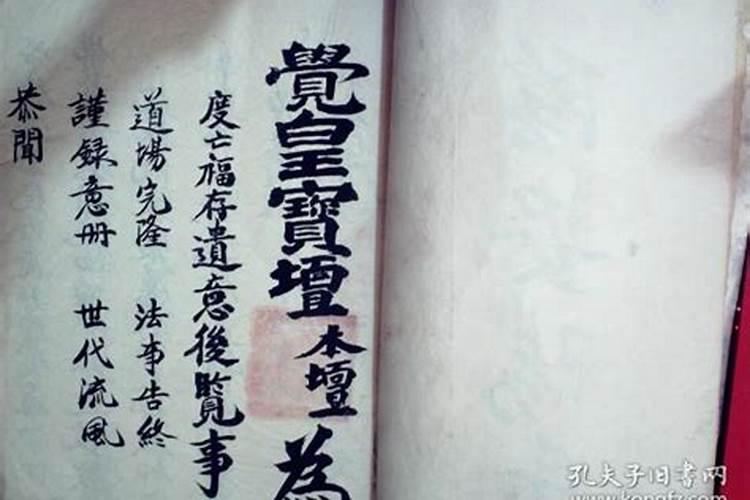 覺皇寶壇本壇為
度亡福存遺意後覽事
道場完隆 法事告終
謹録意册 世代流風
恭聞
孔夫子旧書网